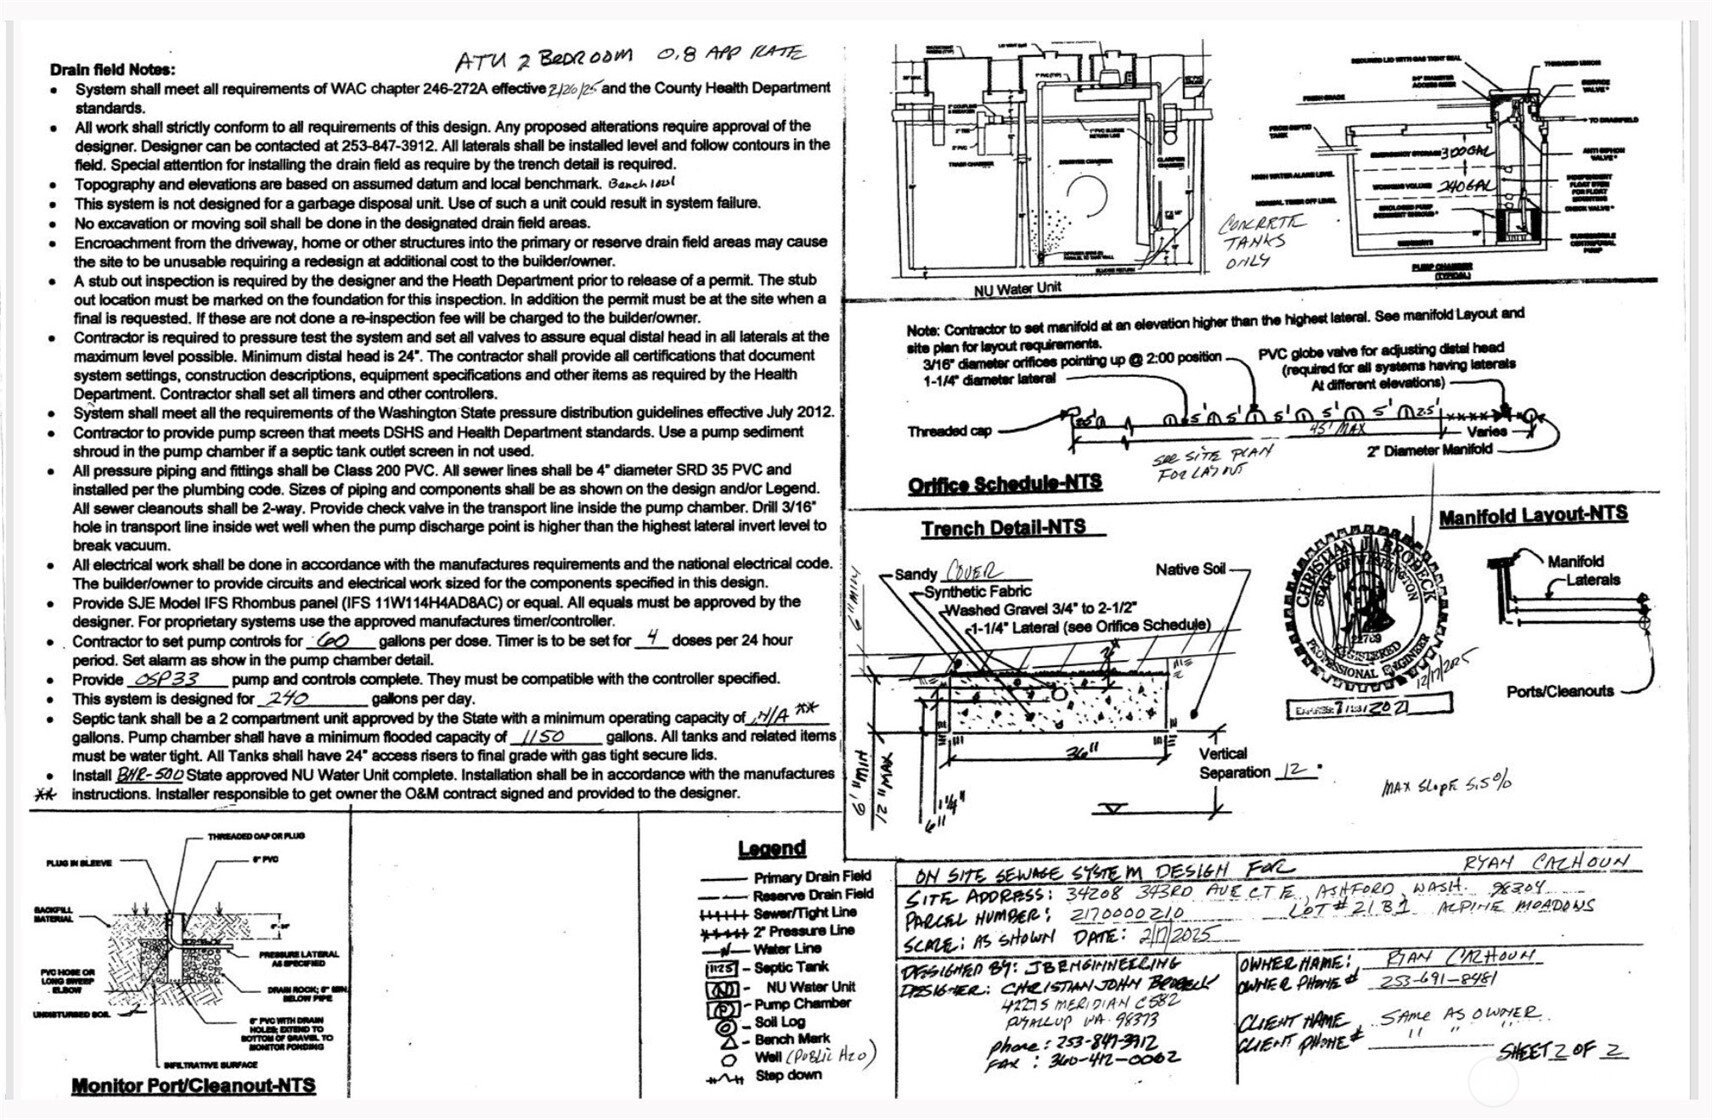 ATU 2 BEDROOM 0.8 APP RATE
Drain field Notes:
• System shall meet all requirements of WAC chapter 246-272A effective 2/26/25 and the County Health Department
standards.
• All work shall strictly conform to all requirements of this design. Any proposed alterations require approval of the
designer. Designer can be contacted at 253-847-3912. All laterals shall be installed level and follow contours in the
field. Special attention for installing the drain field as require by the trench detail is required.
• Topography and elevations are based on assumed datum and local benchmark.
• This system is not designed for a garbage disposal unit. Use of such a unit could result in system failure.
• No excavation or moving soil shall be done in the designated drain field areas.
• Encroachment from the driveway, home or other structures into the primary or reserve drain field areas may cause
the site to be unusable requiring a redesign at additional cost to the builder/owner.
• A stub out inspection is required by the designer and the Heath Department prior to release of a permit. The stub
out location must be marked on the foundation for this inspection. In addition the permit must be at the site when a
final is requested. If these are not done a re-inspection fee will be charged to the builder/owner.
• Contractor is required to pressure test the system and set all valves to assure equal distal head in all laterals at the
maximum level possible. Minimum distal head is 24". The contractor shall provide all certifications that document
system settings, construction descriptions, equipment specifications and other items as required by the Health
Department. Contractor shall set all timers and other controllers.
• System shall meet all the requirements of the Washington State pressure distribution guidelines effective July 2012.
• Contractor to provide pump screen that meets DSHS and Health Department standards. Use a pump sediment
shroud in the pump chamber if a septic tank outlet screen in not used.
• All pressure piping and fittings shall be Class 200 PVC. All sewer lines shall be 4" diameter SRD 35 PVC and
installed per the plumbing code. Sizes of piping and components shall be as shown on the design and/or Legend.
All sewer cleanouts shall be 2-way. Provide check valve in the transport line inside the pump chamber. Drill 3/16"
hole in transport line inside wet well when the pump discharge point is higher than the highest lateral invert level to
break vacuum.
• All electrical work shall be done in accordance with the manufactures requirements and the national electrical code.
The builder/owner to provide circuits and electrical work sized for the components specified in this design.
• Provide SJE Model IFS Rhombus panel (IFS 11W114H4AD8AC) or equal. All equals must be approved by the
designer. For proprietary systems use the approved manufactures timer/controller.
• Contractor to set pump controls for 60 gallons per dose. Timer is to be set for 4 doses per 24 hour
period. Set alarm as show in the pump chamber detail.
• Provide OSP33 pump and controls complete. They must be compatible with the controller specified.
• This system is designed for 240 gallons per day.
• Septic tank shall be a 2 compartment unit approved by the State with a minimum operating capacity of N/A **
gallons. Pump chamber shall have a minimum flooded capacity of 1150 gallons. All tanks and related items
must be water tight. All Tanks shall have 24" access risers to final grade with gas tight secure lids.
• Install BNR-500 State approved NU Water Unit complete. Installation shall be in accordance with the manufactures
** instructions. Installer responsible to get owner the O&M contract signed and provided to the designer.
THREADED CAP OR PLUG
PLUG IN SLEEVE
6" PVC
BACKFILL
MATERIAL
PRESSURE LATERAL
AS SPECIFIED
PVC HOSE OR
LONG SWEEP
ELBOW
DRAIN ROCK; 6" MIN.
BELOW PIPE
UNDISTURBED SOIL
6" PVC WITH DRAIN
HOLES; EXTEND TO
BOTTOM OF GRAVEL TO
MONITOR PONDING
INFILTRATIVE SURFACE
Monitor Port/Cleanout-NTS
Legend
Primary Drain Field
Reserve Drain Field
Sewer/Tight Line
2" Pressure Line
Water Line
1125 - Septic Tank
NU Water Unit
Pump Chamber
Soil Log
Bench Mark
Well (Public H2O)
Step down
TRASH CHAMBER
NU Water Unit
CONCRETE
TANKS
ONLY
REQUIRED LID WITH GAS TIGHT SEAL
THREADED UNION
24" DIAMETER
ACCESS RISER
SERVICE
VALVE*
FINISH GRADE
TO DRAINFIELD
FROM SEPTIC
TANK
EMERGENCY STORAGE 300 GAL
ANTI SIPHON
VALVE*
HIGH WATER ALARM LEVEL
WORKING VOLUME 240 GAL
INDEPENDENT
FLOAT STEM
FOR FLOAT
MOUNTING
NORMAL TIMER OFF LEVEL
CHECK VALVE*
SUBMERSIBLE
CENTRIFUGAL
PUMP
PUMP CHAMBER
(TYPICAL)
Note: Contractor to set manifold at an elevation higher than the highest lateral. See manifold Layout and
site plan for layout requirements.
3/16" diameter orifices pointing up @ 2:00 position
1-1/4" diameter lateral
PVC globe valve for adjusting distal head
(required for all systems having laterals
At different elevations)
5' 5' 5' 5' 5' 2.5'
Threaded cap
45' MAX
Varies
SEE SITE PLAN
FOR LAYOUT
2" Diameter Manifold
Orifice Schedule-NTS
Trench Detail-NTS
Sandy COVER
Native Soil
Synthetic Fabric
Washed Gravel 3/4" to 2-1/2"
1-1/4" Lateral (see Orifice Schedule)
6" MIN
2"
36"
6" MIN
12" MAX
1 1/4"
6"
Vertical
Separation 12 "
CHRISTIAN J BROBECK
STATE OF WASHINGTON
REGISTERED
PROFESSIONAL ENGINEER
12/17/2025
Manifold Layout-NTS
Manifold
Laterals
Ports/Cleanouts
MAX SLOPE 5.5%
ON SITE SEWAGE SYSTEM DESIGN FOR RYAN CALHOUN
SITE ADDRESS: 34208 343RD AVE CT E, ASHFORD, WASH. 98304
PARCEL NUMBER: 2170000210 LOT # 21 B1 ALPINE MEADOWS
SCALE: AS SHOWN DATE: 2/17/2025
DESIGNED BY: JB ENGINEERING
DESIGNER: CHRISTIAN JOHN BROBECK
4227 S MERIDIAN C582
PUYALLUP WA 98373
Phone: 253-847-3912
FAX: 360-412-0062
OWNER NAME: RYAN CALHOUN
OWNER PHONE # 253-691-8481
CLIENT NAME SAME AS OWNER
CLIENT PHONE # " " "
SHEET 2 OF 2